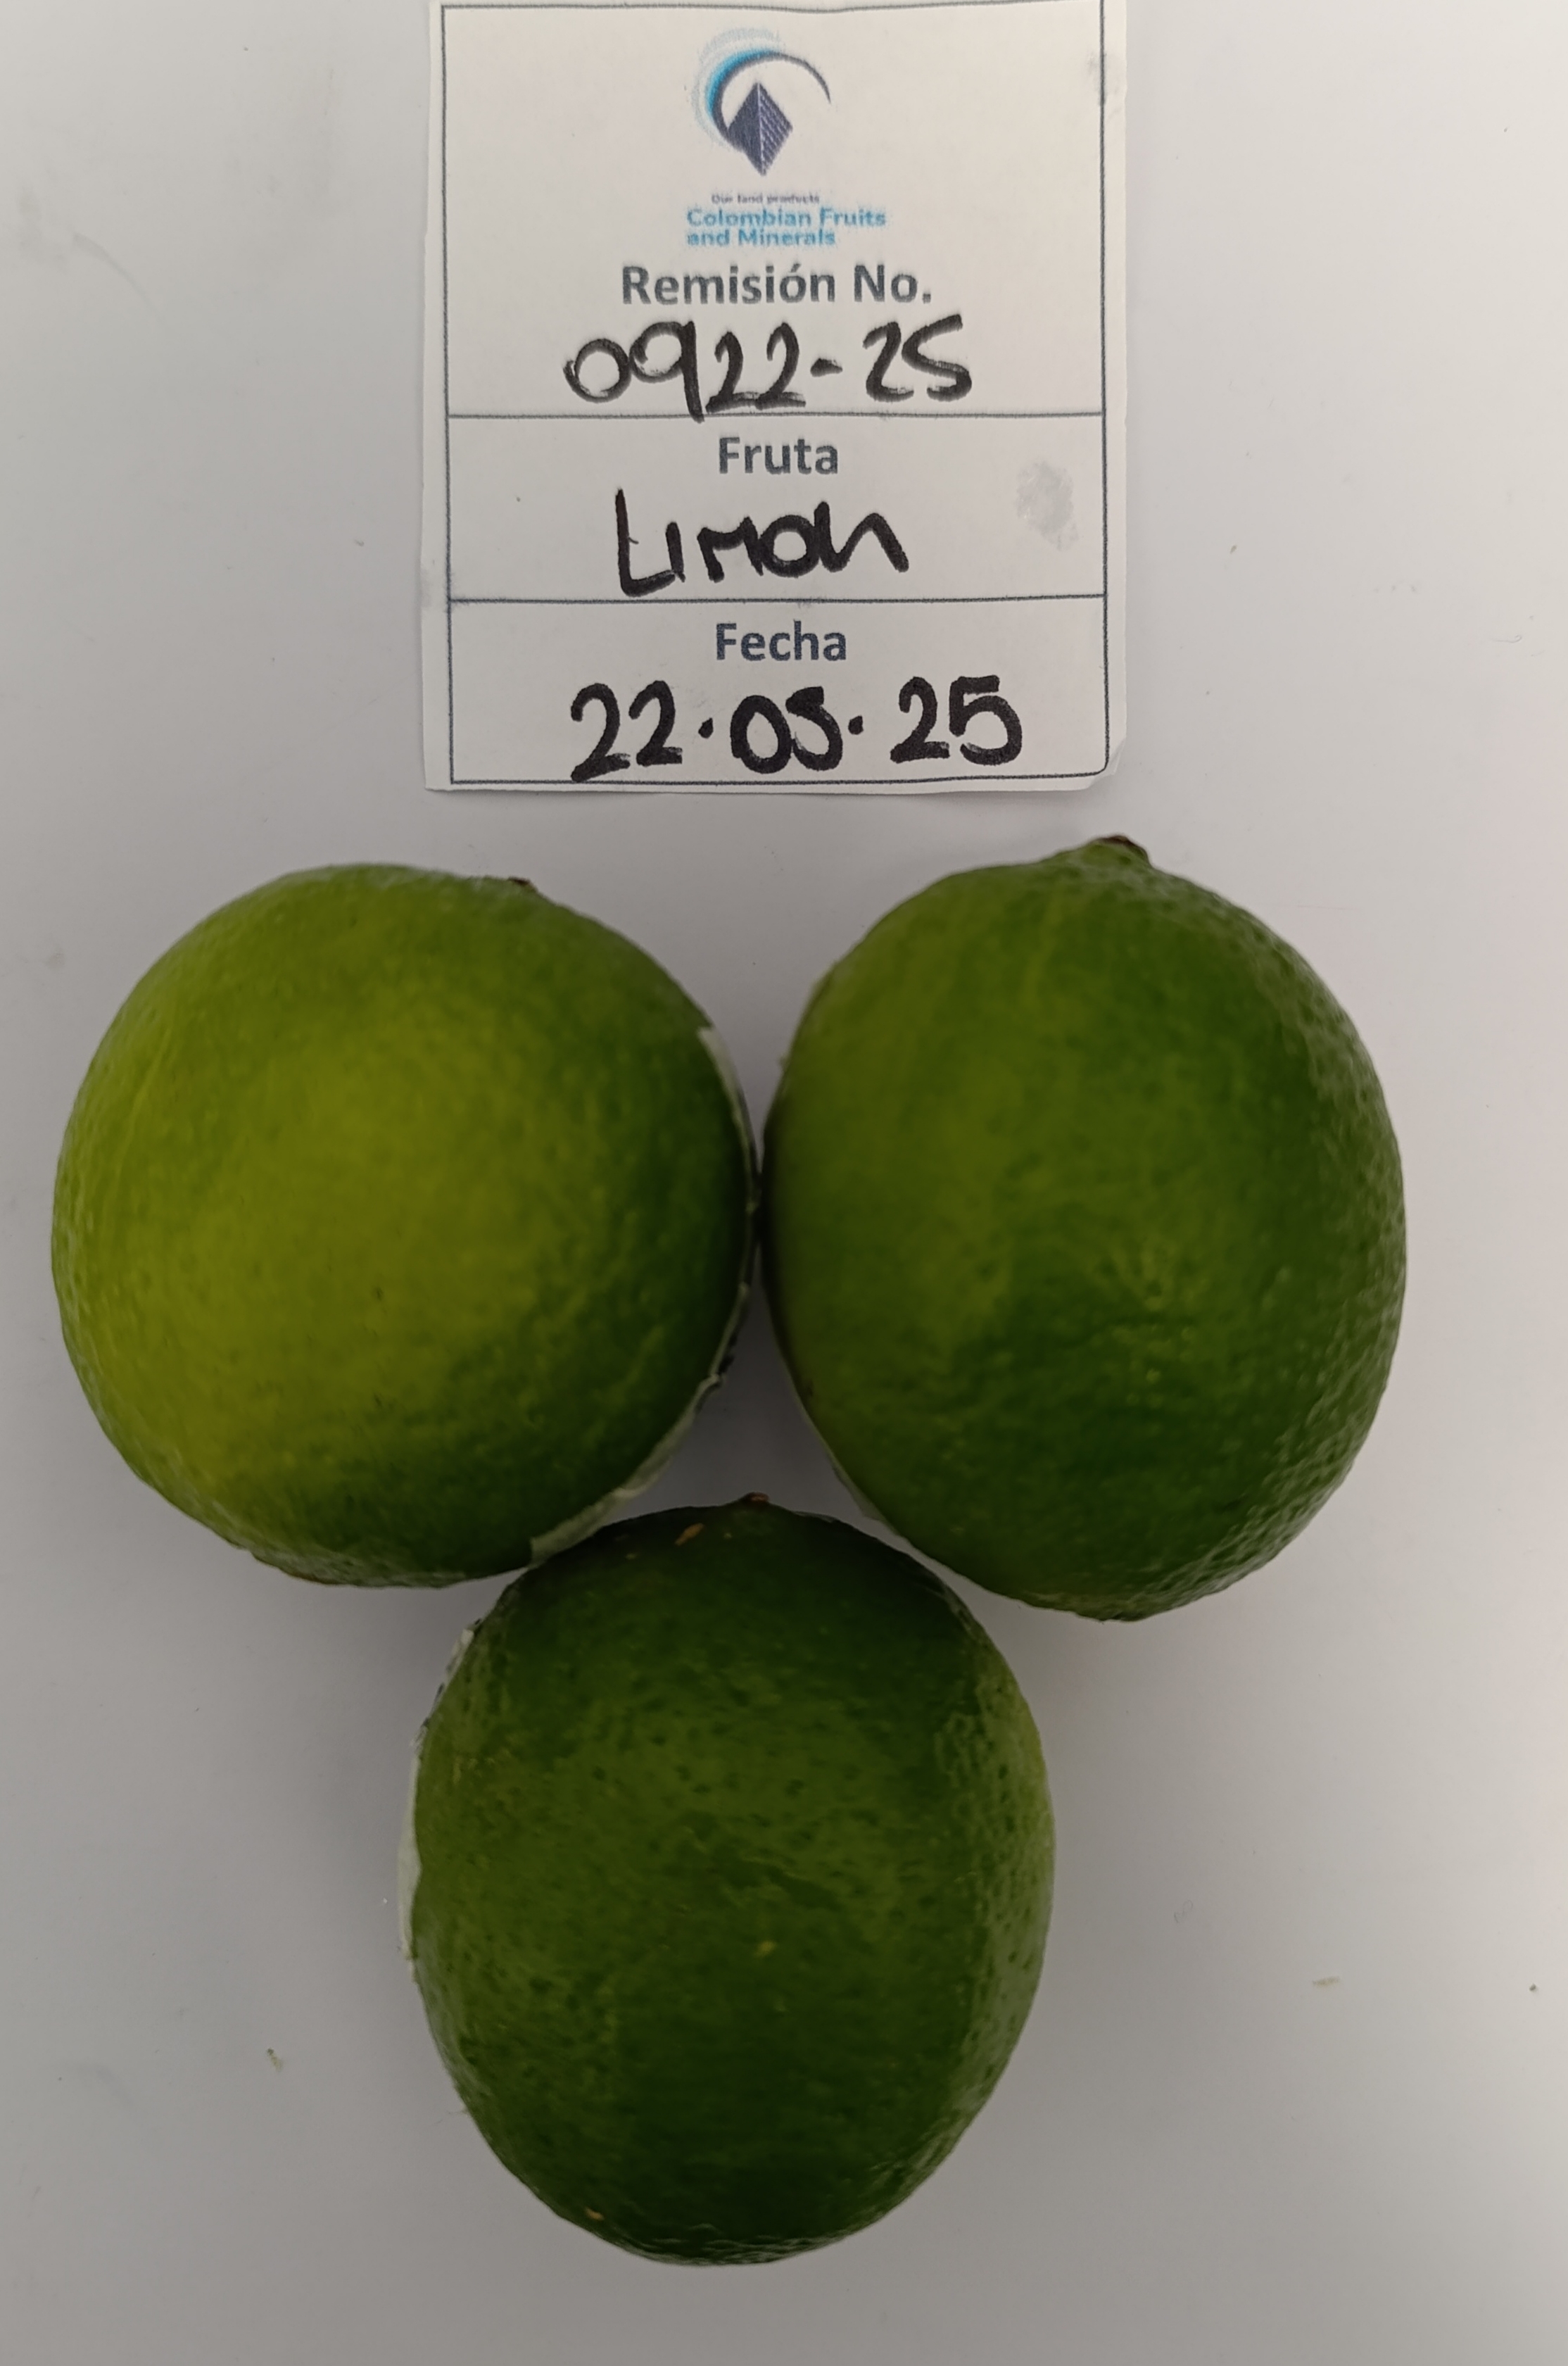 Our land products
Colombian Fruits
and Minerals
Remisión No.
0922-25
Fruta
Limon
Fecha
22.05.25